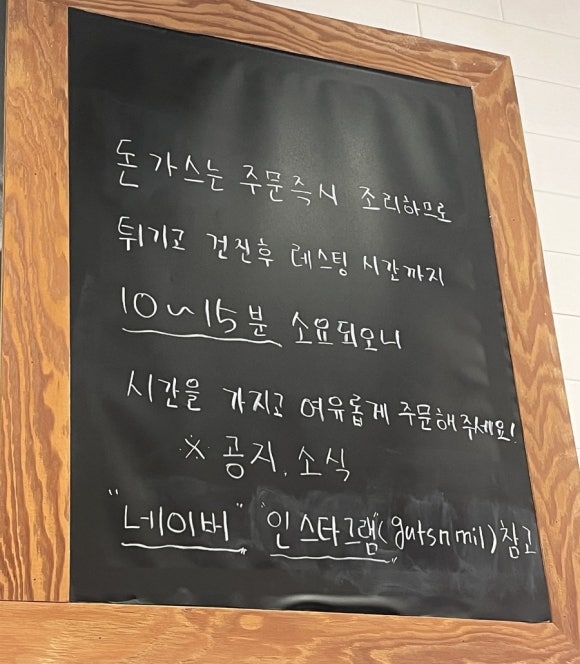 돈가스는 주문즉시 조리하므로
튀기고 건진후 레스팅 시간까지
10~15분 소요되오니
시간을 가지고 여유롭게 주문해주세요!
※ 공지, 소식
"네이버" "인스타그램"(gutsnmil)참고